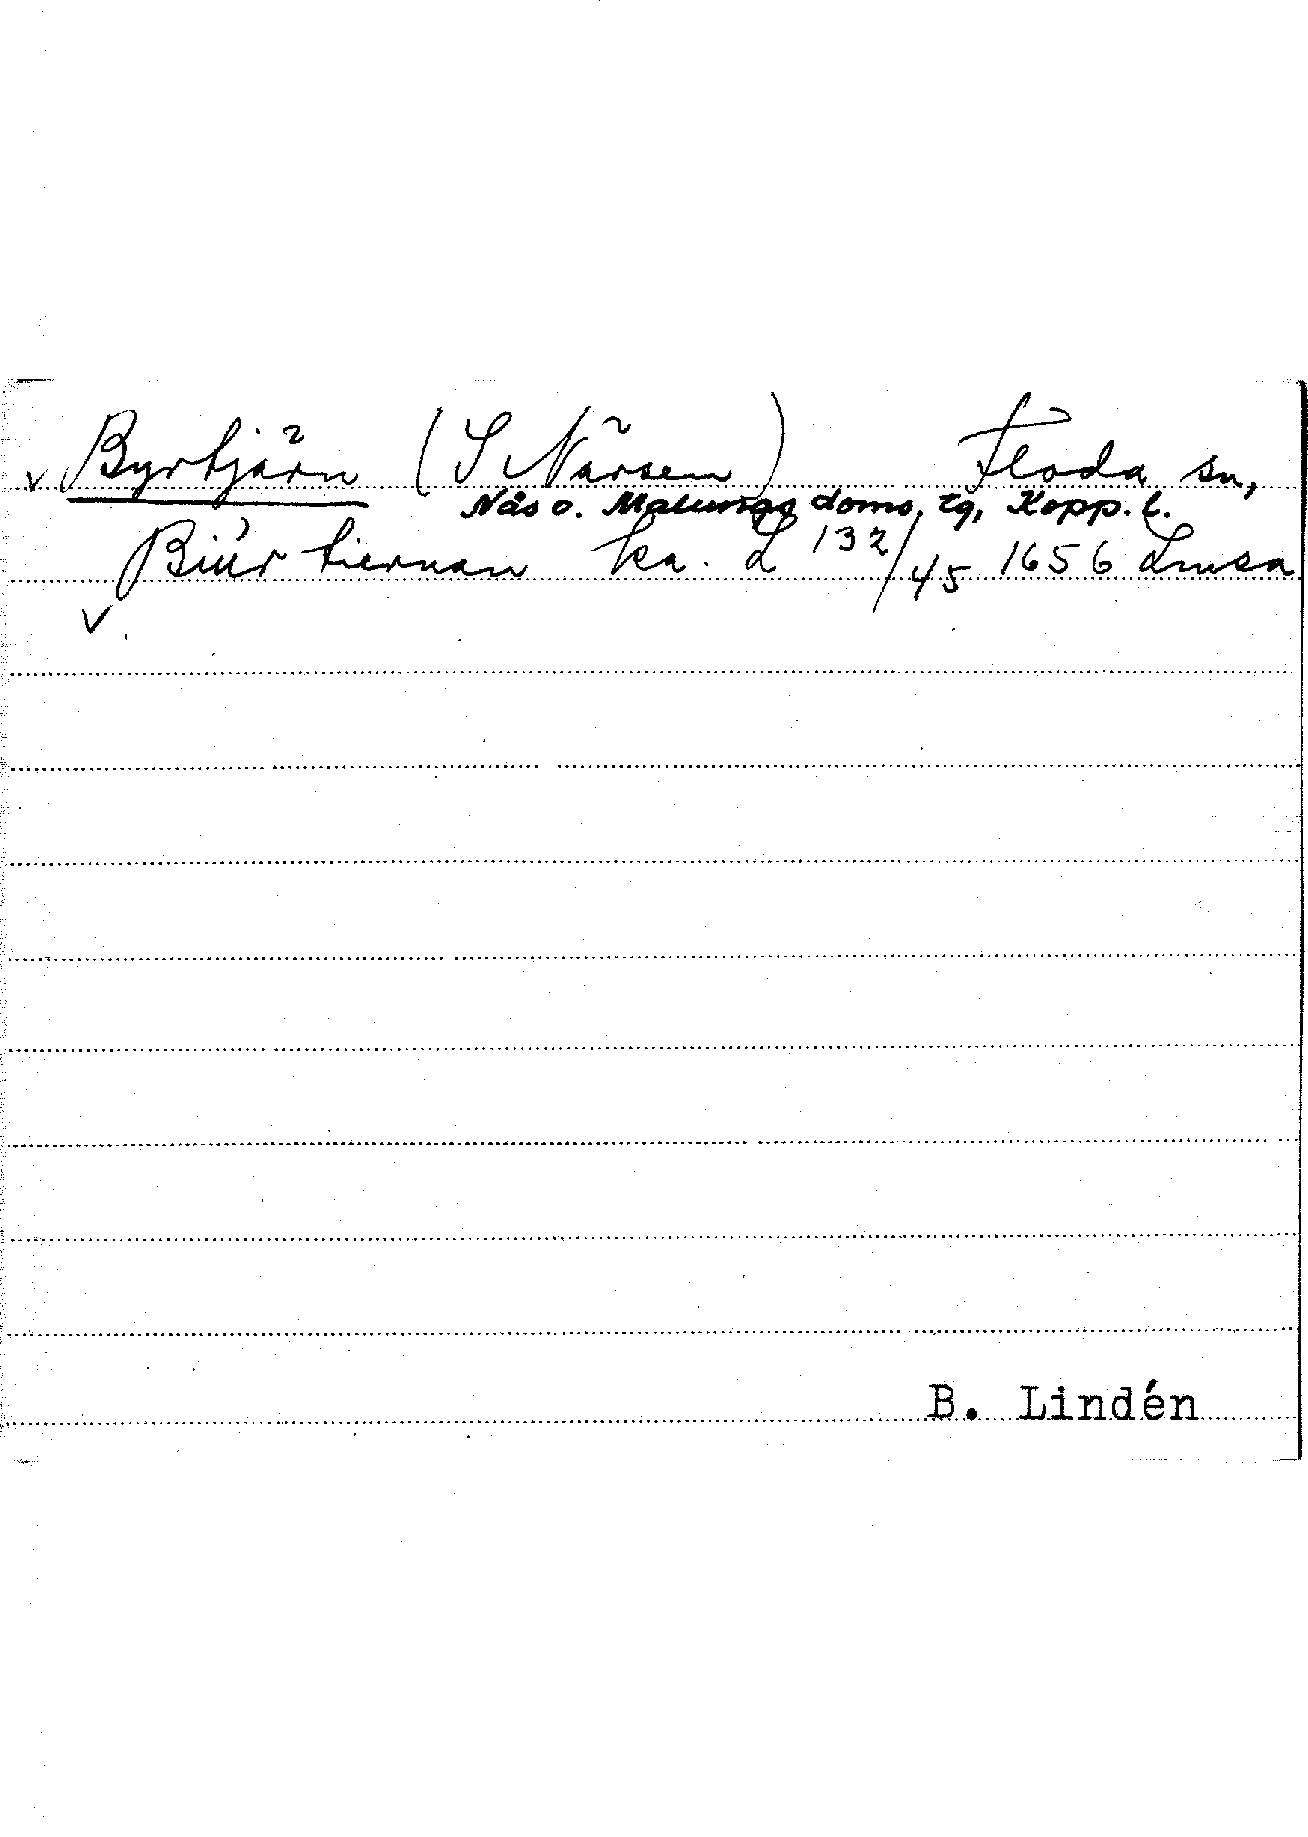 Byrtjärn (S Närsen) Floda sn,
Nås o. Malungs doms. tg, Kopp. l.
Biúr tiernan ka. L 132/45 1656 Lmsa
B. Lindén